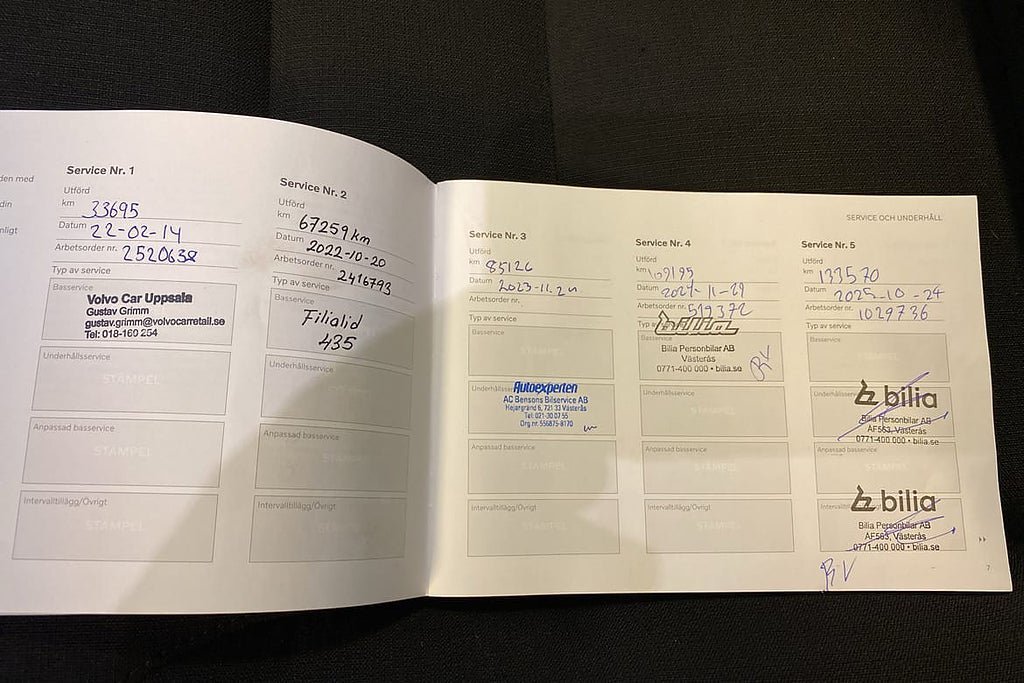 den med
din
nligt
Service Nr. 1
Utförd
km 33695
Datum 22-02-14
Arbetsorder nr. 2520638
Typ av service
Basservice
Volvo Car Uppsala
Gustav Grimm
gustav.grimm@volvocarretail.se
Tel: 018-160 254
Underhållsservice
STÄMPEL
Anpassad basservice
STÄMPEL
Intervalltillägg/Övrigt
STÄMPEL
Service Nr. 2
Utförd
km 67259 km
Datum 2022-10-20
Arbetsorder nr. 2416793
Typ av service
Basservice
Filialid
435
Underhållsservice
Anpassad basservice
Intervalltillägg/Övrigt
SERVICE OCH UNDERHÅLL
Service Nr. 3
Utförd
km 85126
Datum 2023-11-24
Arbetsorder nr.
Typ av service
Basservice
STÄMPEL
Underhållsservice
Autoexperten
AC Bensons Bilservice AB
Hejargränd 6, 721 33 Västerås
Tel: 021-30 07 55
Org.nr. 556875-8170
Anpassad basservice
STÄMPEL
Intervalltillägg/Övrigt
STÄMPEL
Service Nr. 4
Utförd
km 109195
Datum 2024-11-29
Arbetsorder nr. 519372
Typ av
bilia
Basservice
Bilia Personbilar AB
Västerås
0771-400 000 • bilia.se
RV
Underhållsservice
STÄMPEL
Anpassad basservice
STÄMPEL
Intervalltillägg/Övrigt
STÄMPEL
Service Nr. 5
Utförd
km 133570
Datum 2025-10-24
Arbetsorder nr. 1029736
Typ av service
Basservice
STÄMPEL
bilia
Bilia Personbilar AB
AF563, Västerås
0771-400 000 • bilia.se
Anpassad basservice
STÄMPEL
bilia
Bilia Personbilar AB
AF563, Västerås
0771-400 000 • bilia.se
RV
7